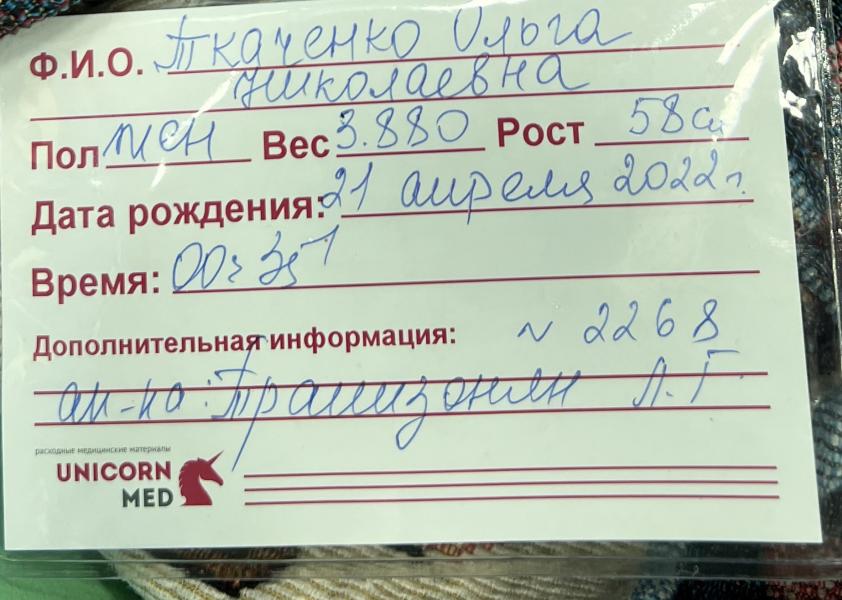 Ф.И.О. Ткаченко Ольга
Николаевна
Пол жен Вес 3.880 Рост 58см
Дата рождения: 21 апреля 2022г.
Время: 00ч
Дополнительная информация: № 2268
ак-ка: Л.Г.
расходные медицинские материалы
UNICORN
MED